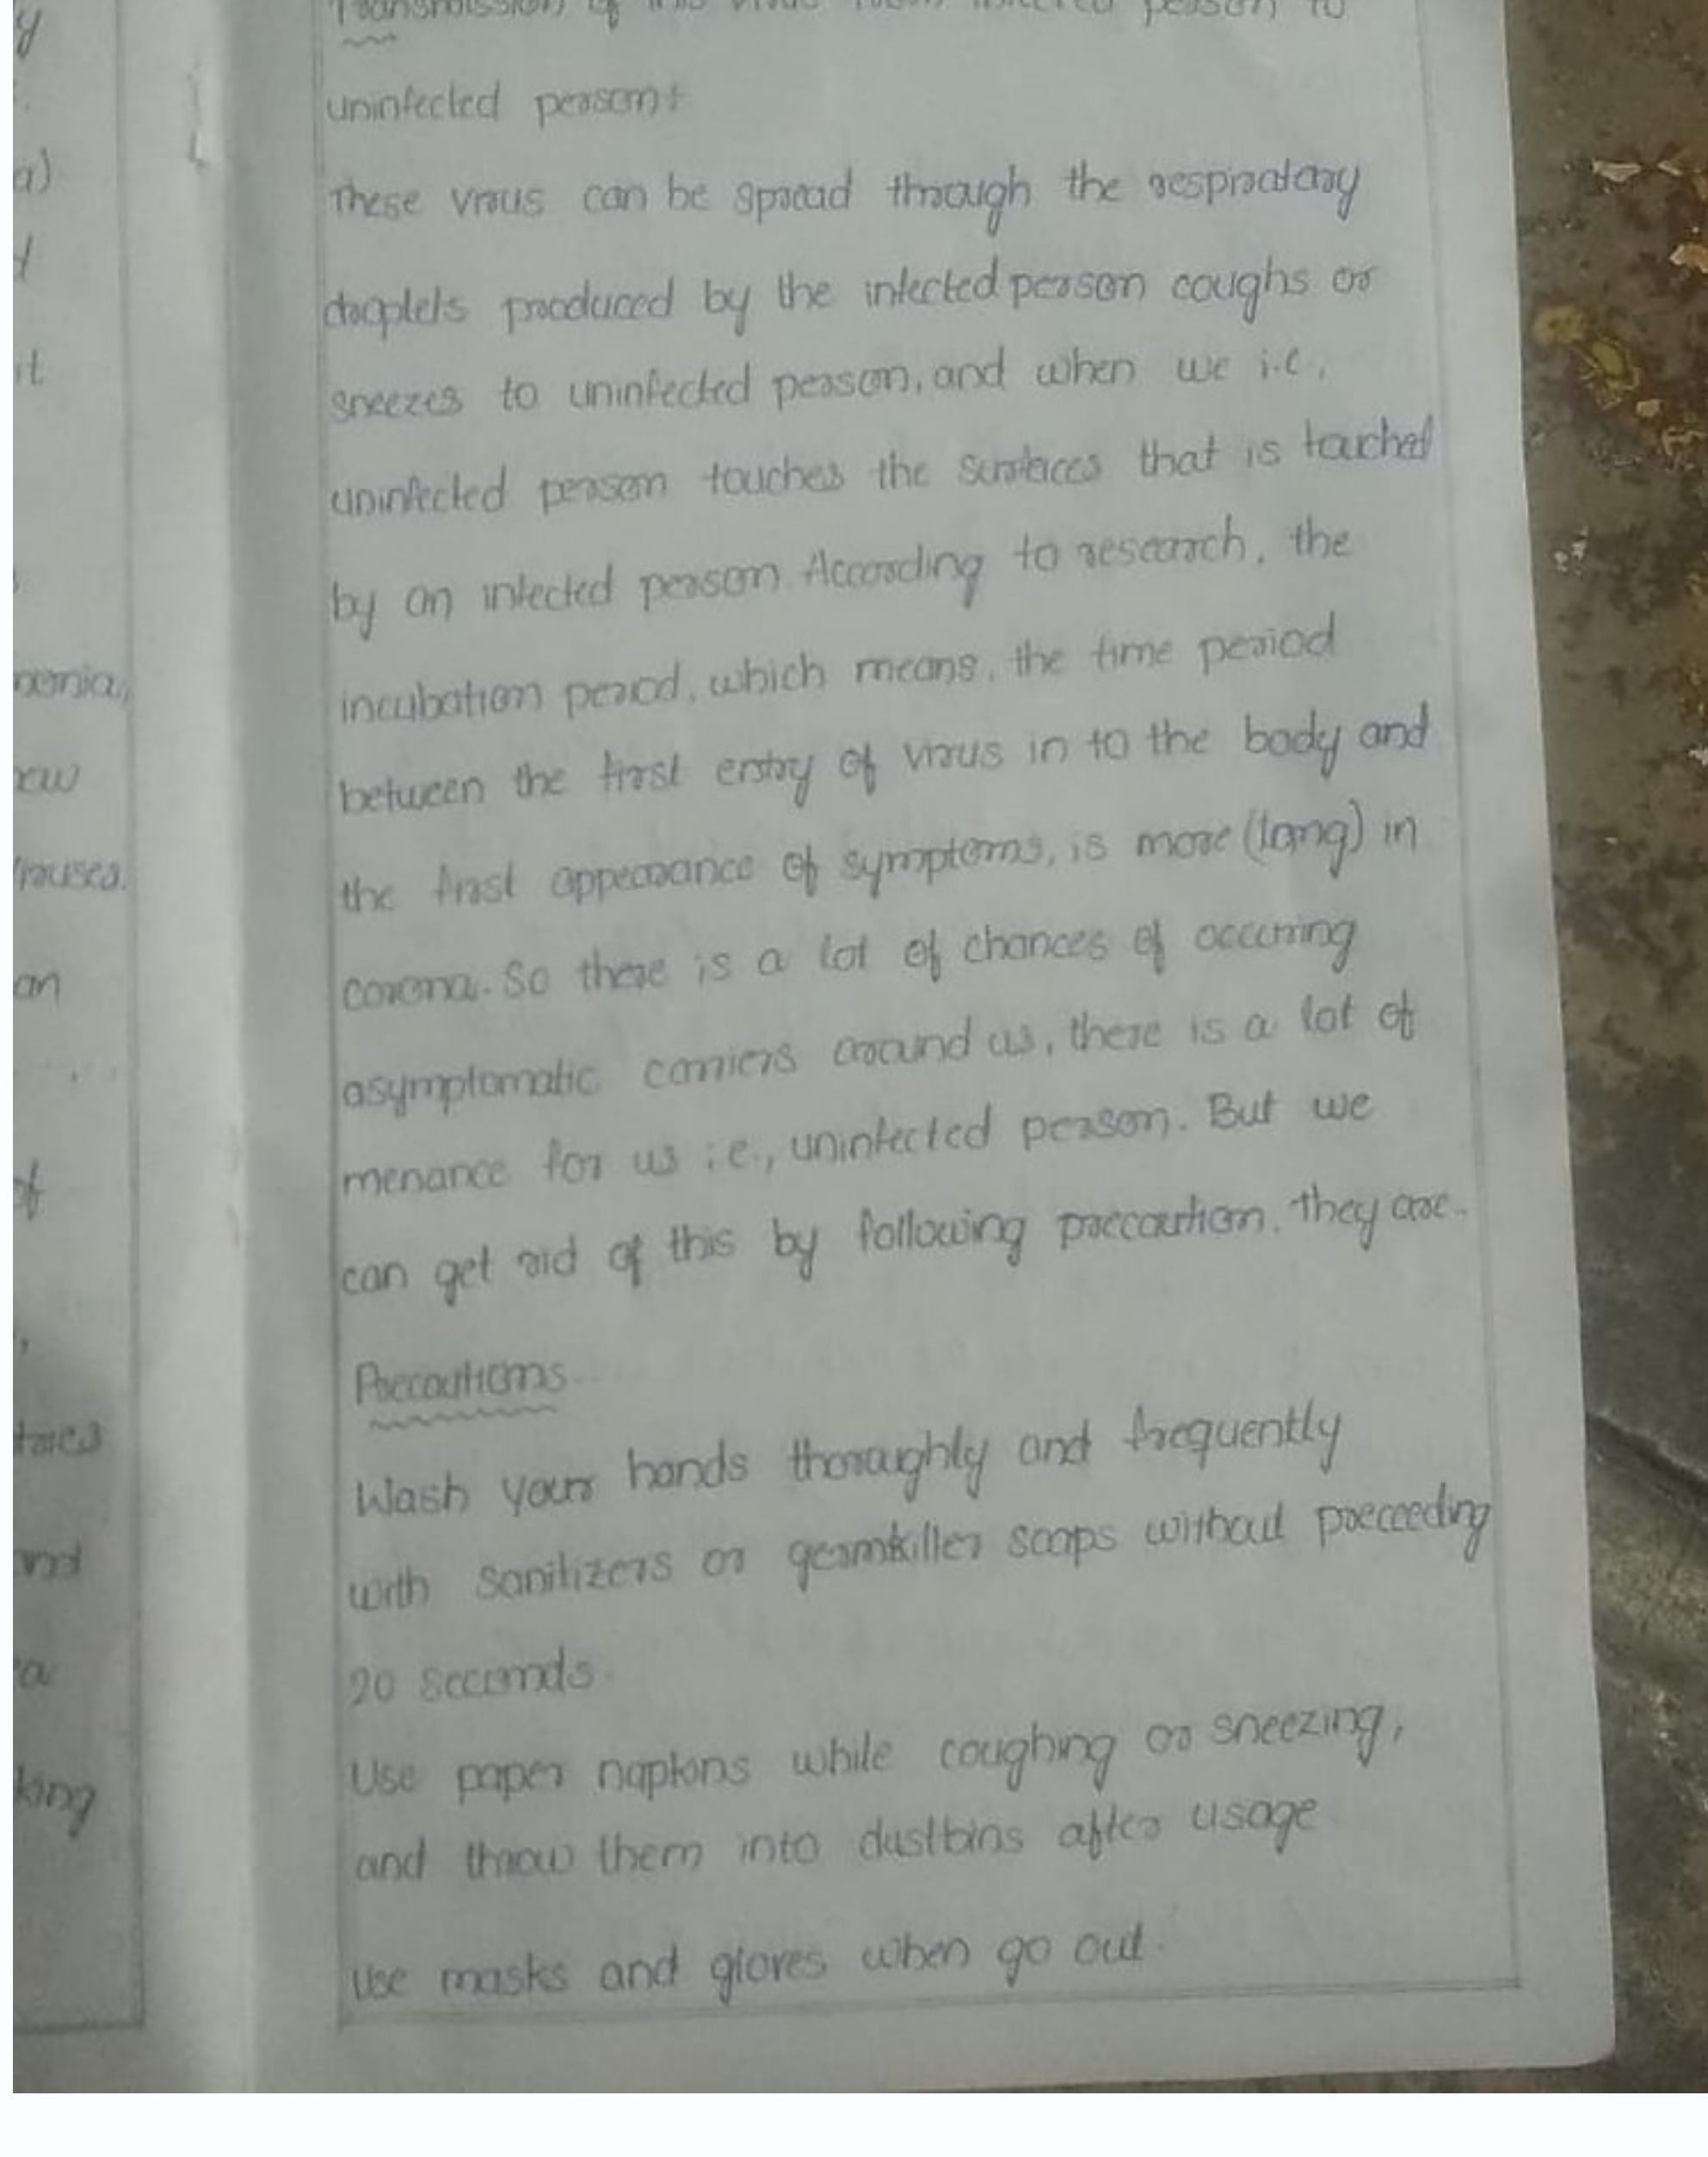 y
Transmission of this virus from infected person to
uninfected person:
a)
These virus can be spread through the respiratory
droplets produced by the infected person coughs or
it
sneezes to uninfected person, and when we i.e.,
uninfected person touches the surfaces that is touched
by an infected person. According to research, the
incubation period, which means, the time period
between the first entry of virus in to the body and
the first appearance of symptoms, is more (long) in
an
corona. So there is a lot of chances of occurring
asymptomatic carriers around us, there is a lot of
menance for us i.e., uninfected person. But we
of
can get rid of this by following precaution. They are..
Precautions
Wash your hands thoroughly and frequently
with sanitizers or germkiller soaps without preceeding
20 seconds.
a
Use paper napkins while coughing or sneezing,
king
and throw them into dustbins after usage
Use masks and gloves when go out.